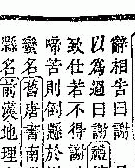 辭相告曰謝
以為過曰謝
致仕若不得謝
啼苦則倒懸於
蠻名舊唐書南
縣名前漢地理